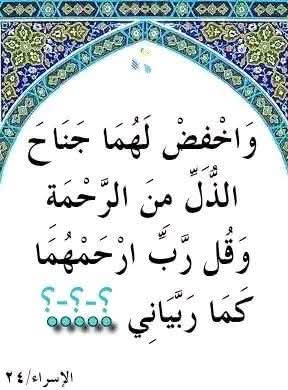 وَاخْفِضْ لَهُمَا جَنَاحَ
الذُّلِّ مِنَ الرَّحْمَةِ
وَقُل رَّبِّ ارْحَمْهُمَا
كَمَا رَبَّيَانِي ؟-؟-؟
الإسراء/٢٤